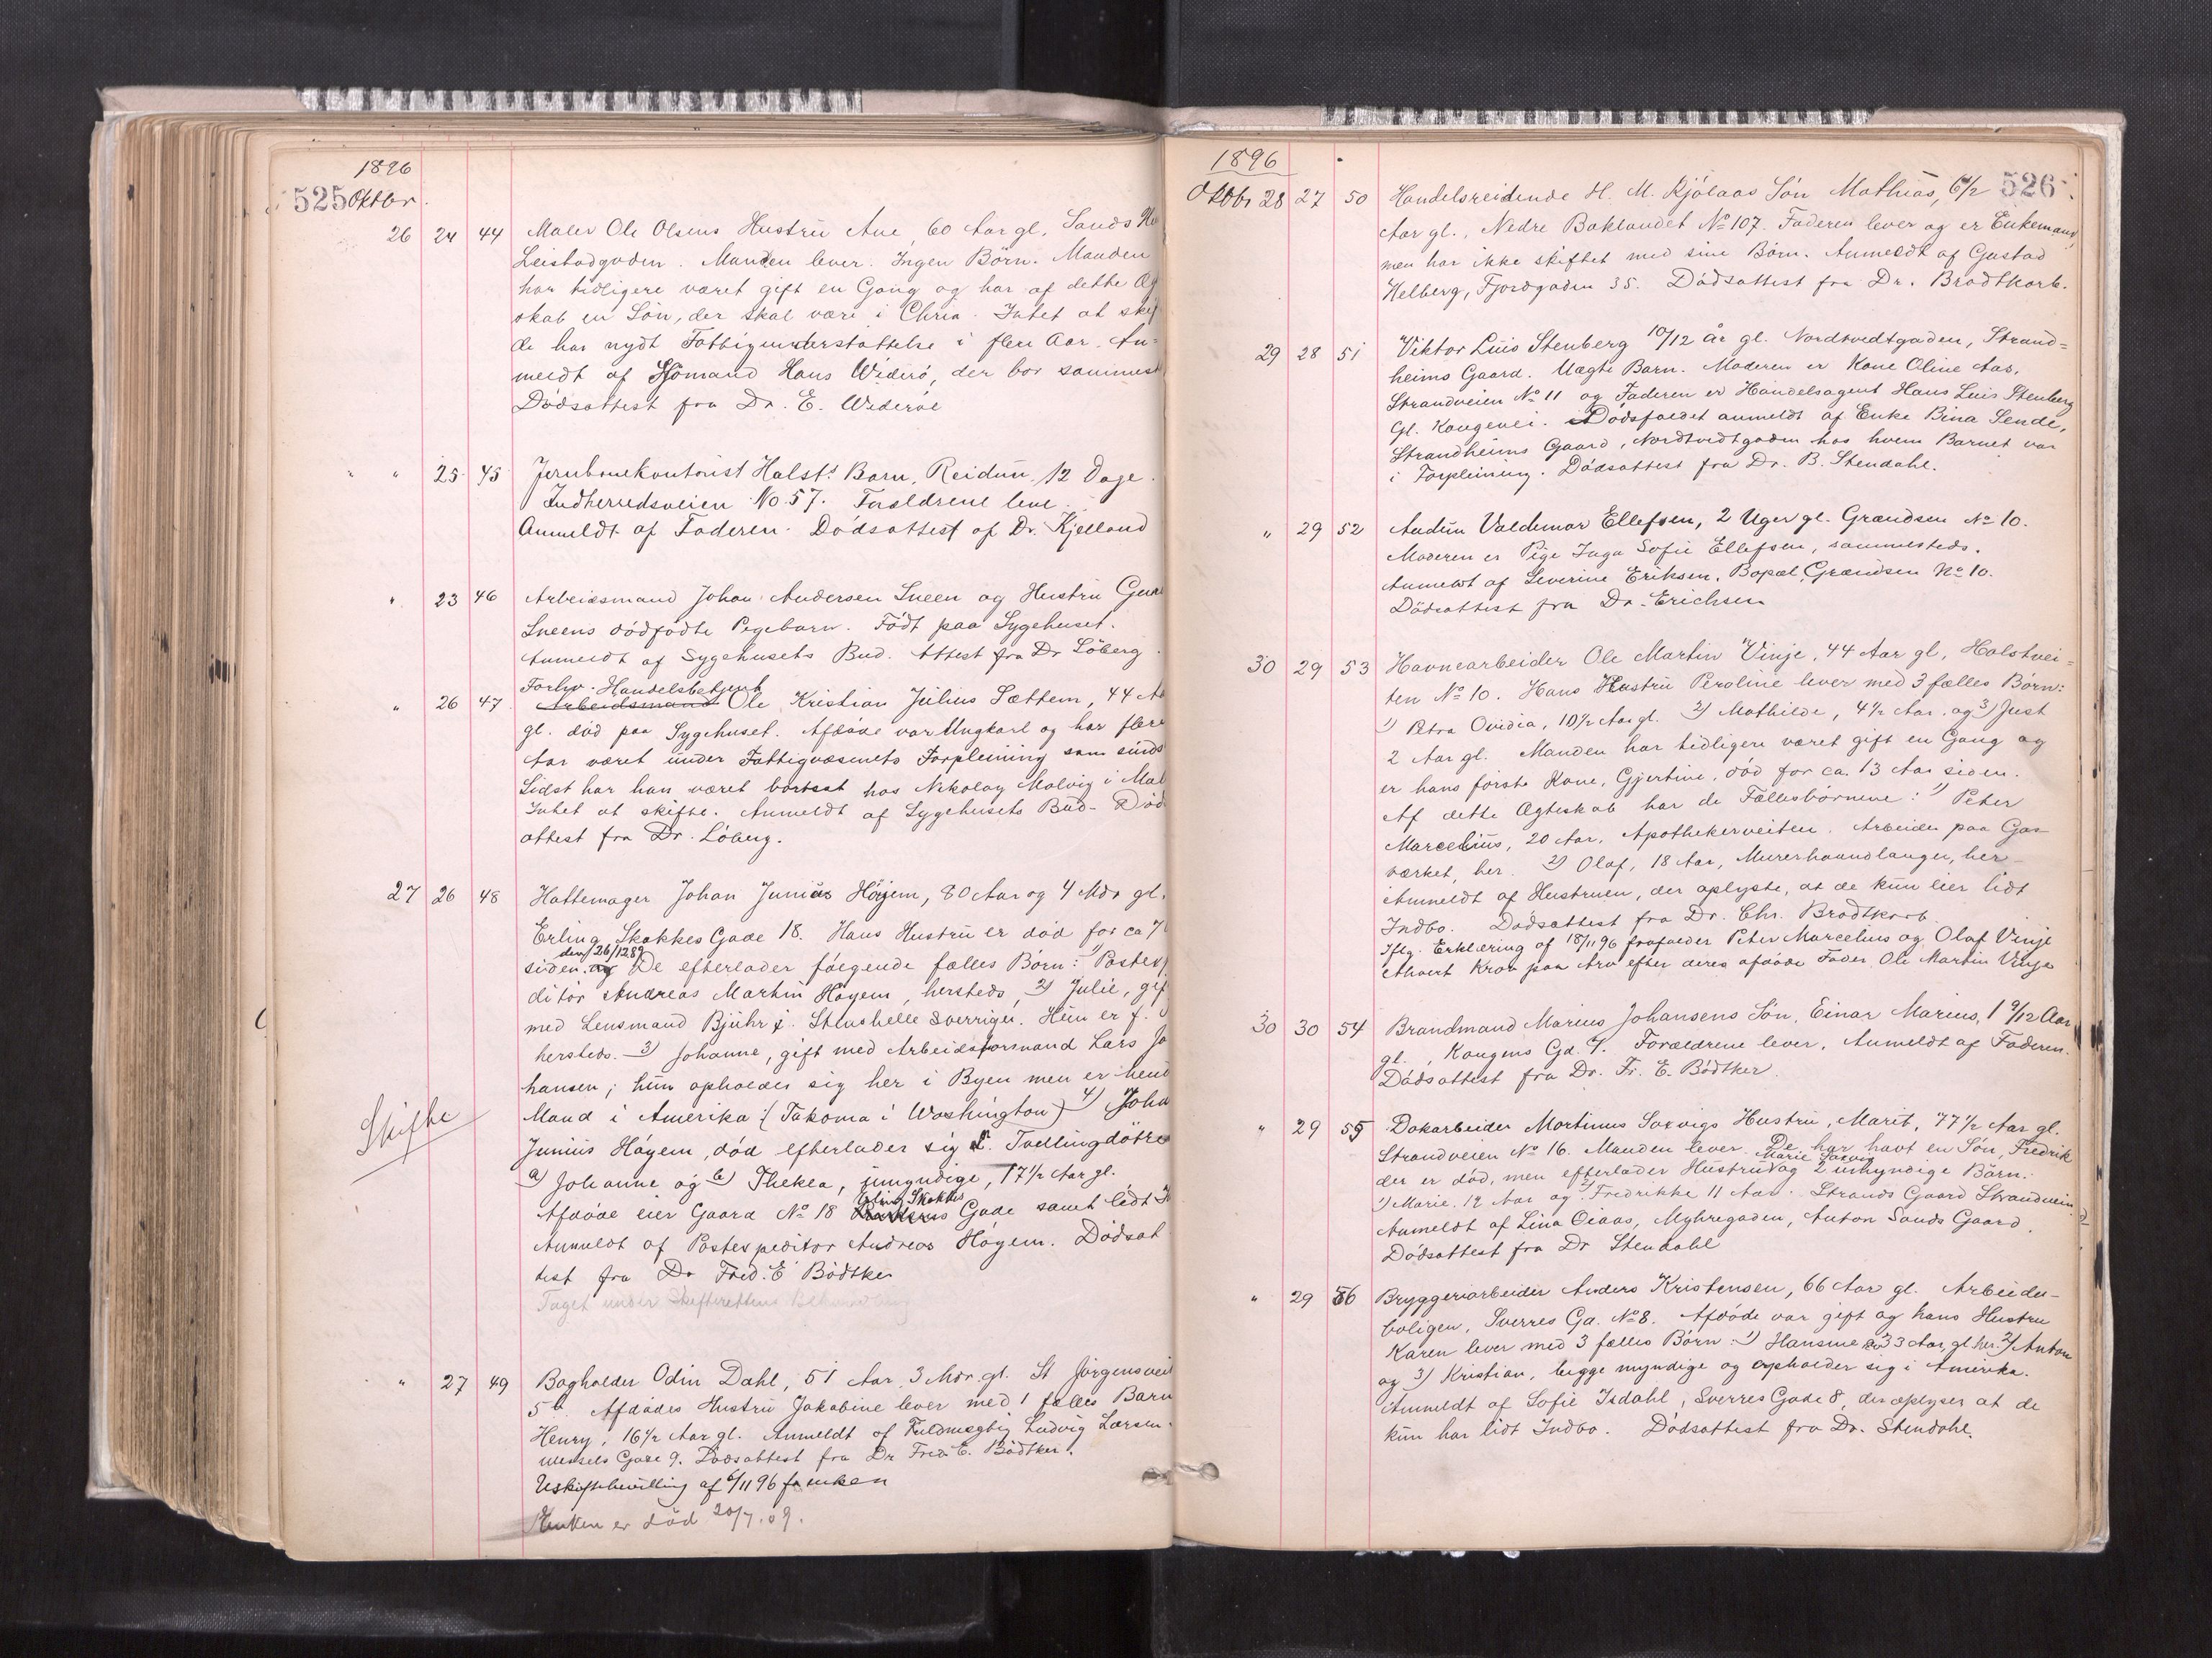 1896
525 Oktbr.
26 24 44 Maler Ole Olsens Hustru Ane, 60 Aar gl. Sands
Leistadgaden. Manden lever. Ingen Börn. Manden
har tidligere været gift en Gang og har af dette Æg
skab en Sön, der skal være i Chria. Intet at skif
de har nydt Fattigunderstøttelse i flere Aar. An=
meldt af Sjömand Hans Wideró, der bor sammest
Dödsattest fra Dr. E. Wideröe
" " 25 45 Jernbanekontorist Halsts Barn, Reidun 12 Dage.
Indherredsveien No 57. Forældrene leve.
Anmeldt af Faderen. Dödsattest af Dr. Kjelland
" 23 46 Arbeidsmand Johan Andersen Sneen og Hustru
Sneens dödfödte Pigebarn. Födt paa Sygehuset.
Anmeldt af Sygehusets Bud. Attest fra Dr Löberg.
Forhv. Handelsbetjent
" 26 47. Arbeidsmand Ole Kristian Julius Sættem, 44 Aa
gl. död paa Sygehuset. Afdöde var Ungkarl og har flere
Aar været under Fattigvæsenets Forpleining som sinds
Sidst har han været bortsat hos Nikolay Malvig i Mal
Intet at skifte. Anmeldt af Sygehusets Bud. Död
attest fra Dr. Löberg.
27 26 48 Hattemager Johan Junius Höyem, 80 Aar og 4 Mdr gl.
Erling Skakkes Gade 18. Hans Hustru er död for ca 7
den 26/12 89
siden. og De efterlader fölgende fælles Börn: 1) Postexp
ditör Andreas Martin Höyem, hersteds, 2) Julie, gif
med Lensmand Bjuhr i Sverriges. Hun er f.
hersteds. 3) Johanne, gift med Arbeidsformand Lars Jo
hansen; hun opholder sig her i Byen men er hend
Mand i Amerika (Takoma i Washington) 4) Joha
Skifte
Junius Höyem, död efterlader sig 2 Tvillingdötre
a) Johanne og b) Thekla, umyndige, 17 1/2 Aar gl.
Erling Skakkes
Afdöde eier Gaard No 18 Gade samt lidt
Anmeldt af Postexpeditör Andreas Höyem. Dödsat
test fra Dr Fred. E Bödtker
Taget under Skifterettens Behandling
" 27 49 Bogholder Odin Dahl, 51 Aar 3 Mdr. gl. St Jörgensveit
5a. Afdödes Hustru Jakobine lever med 1 fælles Barn
Henry, 16 1/2 Aar gl. Anmeldt af Fuldmægtig Ludvig Larsen
Wessels Gade 9. Dödsattest fra Dr Fred. E. Bödtker.
Uskiftebevilling af 6/11 96 for enken
Enken er död 20/7.09.
1896
Oktbr 28 27 50 Handelsreisende H. M. Kjölaas Sön Mathias, 6 1/2 526
Aar gl., Nedre Baklandet No 107. Faderen lever og er Enkemand,
men har ikke skiftet med sine Börn. Anmeldt af Gustad
Helberg, Fjordgaden 35. Dödsattest fra Dr. Brodtkorb.
29 28 51 Viktor Luis Stenberg 10/12 år gl. Nordtvedtgaden, Strand=
heims Gaard. Uægte Barn. Moderen er Kone Oline Aas,
Strandveien No 11 og Faderen er Handelsagent Hans Luis Stenberg
Gl. Kongevei. Dödsfaldet anmeldt af Enke Bina Sende,
Strandheims Gaard, Nordtvedtgaden hos hvem Barnet var
i Forpleining. Dödsattest fra Dr. B. Stendahl.
" 29 52 Audun Valdemar Ellefsen, 2 Uger gl. Grændsen No 10.
Moderen er Pige Inga Sofie Ellefsen, sammesteds.
Anmeldt af Severine Eriksen. Bopæl Grændsen No 10.
Dödsattest fra Dr. Erichsen
30 29 53 Havnearbeider Ole Martin Vinje, 44 Aar gl, Holstvei=
ten No 10. Hans Hustru Peroline lever med 3 fælles Börn:
1) Petra Ovidia, 10 1/2 Aar gl. 2) Mathilde, 4 1/2 Aar, og 3) Just
2 Aar gl. Manden har tidligere været gift en Gang og
er hans förste Kone, Gjertine, död for ca. 13 Aar siden.
Af dette Ægteskab har de Fællesbörnene: 1) Peter
Marcelius, 20 Aar, Apothekerveiten. Arbeider paa Gas
værket, her. 2) Olaf, 18 Aar, Murerhaandlanger, her
Anmeldt af Hustruen, der oplyste, at de kun eier lidt
Indbo. Dödsattest fra Dr. Chr. Brodtkorb.
Iflg. Erklæring af 18/11 96 frafalder Peter Marcelius og Olaf Vinje
ethvert Krav paa Arv efter deres afdöde Fader Ole Martin Vinje
30 30 54 Brandmand Marius Johansens Sön, Einar Marius, 1 9/12 Aar
gl., Kongens Gd. 7. Forældrene lever. Anmeldt af Faderen.
Dödsattest fra Dr. Fr. E. Bödtker.
" 29 55 Dokarbeider Martinus Saxvigs Hustru, Marit, 77 1/2 Aar gl.
Strandveien No 16. Manden lever. De har havt en Sön, Fredrik
Marie Saxvig
der er död, men efterlader Hustru og 2 umyndige Börn:
1) Marie, 12 Aar og 2) Fredrikke 11 Aar. Strands Gaard Strandveien.
Anmeldt af Lina Oiaas, Myhregaden, Anton Sands Gaard.
Dödsattest fra Dr Stendahl
" 29 56 Bryggeriarbeider Anders Kristensen, 66 Aar gl. Arbeider-
boligen, Sverres Ga. No 8. Afdöde var gift og hans Hustru
Karen lever med 3 fælles Börn: 1) Hansine 33 Aar, gl. her. 2) Anton
og 3) Kristian, begge myndige og opholder sig i Amerika.
Anmeldt af Sofie Isdahl, Sverres Gade 8, der oplyser at de
kun har lidt Indbo. Dödsattest fra Dr. Stendahl.